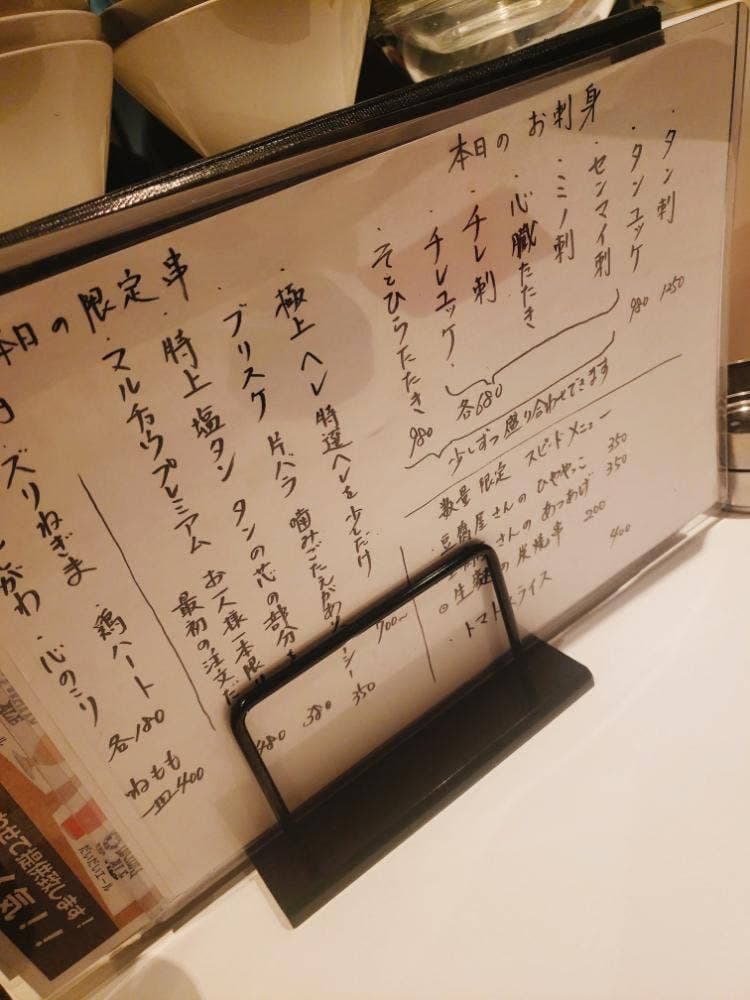 本日のお刺身
・タン刺 1250
・タンユッケ 980
・センマイ刺
・ミノ刺
・心臓たたき
・チレ刺
・チレユッケ
各680
・そとひらたたき 980
少しずつ盛り合わせできます
数量限定 スピードメニュー
・豆腐屋さんのひややっこ 350
さんのあつあげ 350
の炭焼串 200
・トマトスライス 400
本日の限定串
・極上ヘレ 特選ヘレを少しだけ 700〜
・ブリスケ 片バラ 噛みごたえがあり 350
・特上塩タン タンの芯の部分 380
・マルチョウプレミアム お一人様一本限 最初の注文 480
・ズリねぎま
鶏ハート
・心のこり
各180
ねもも
一皿400
わせて提供致します!
気!!